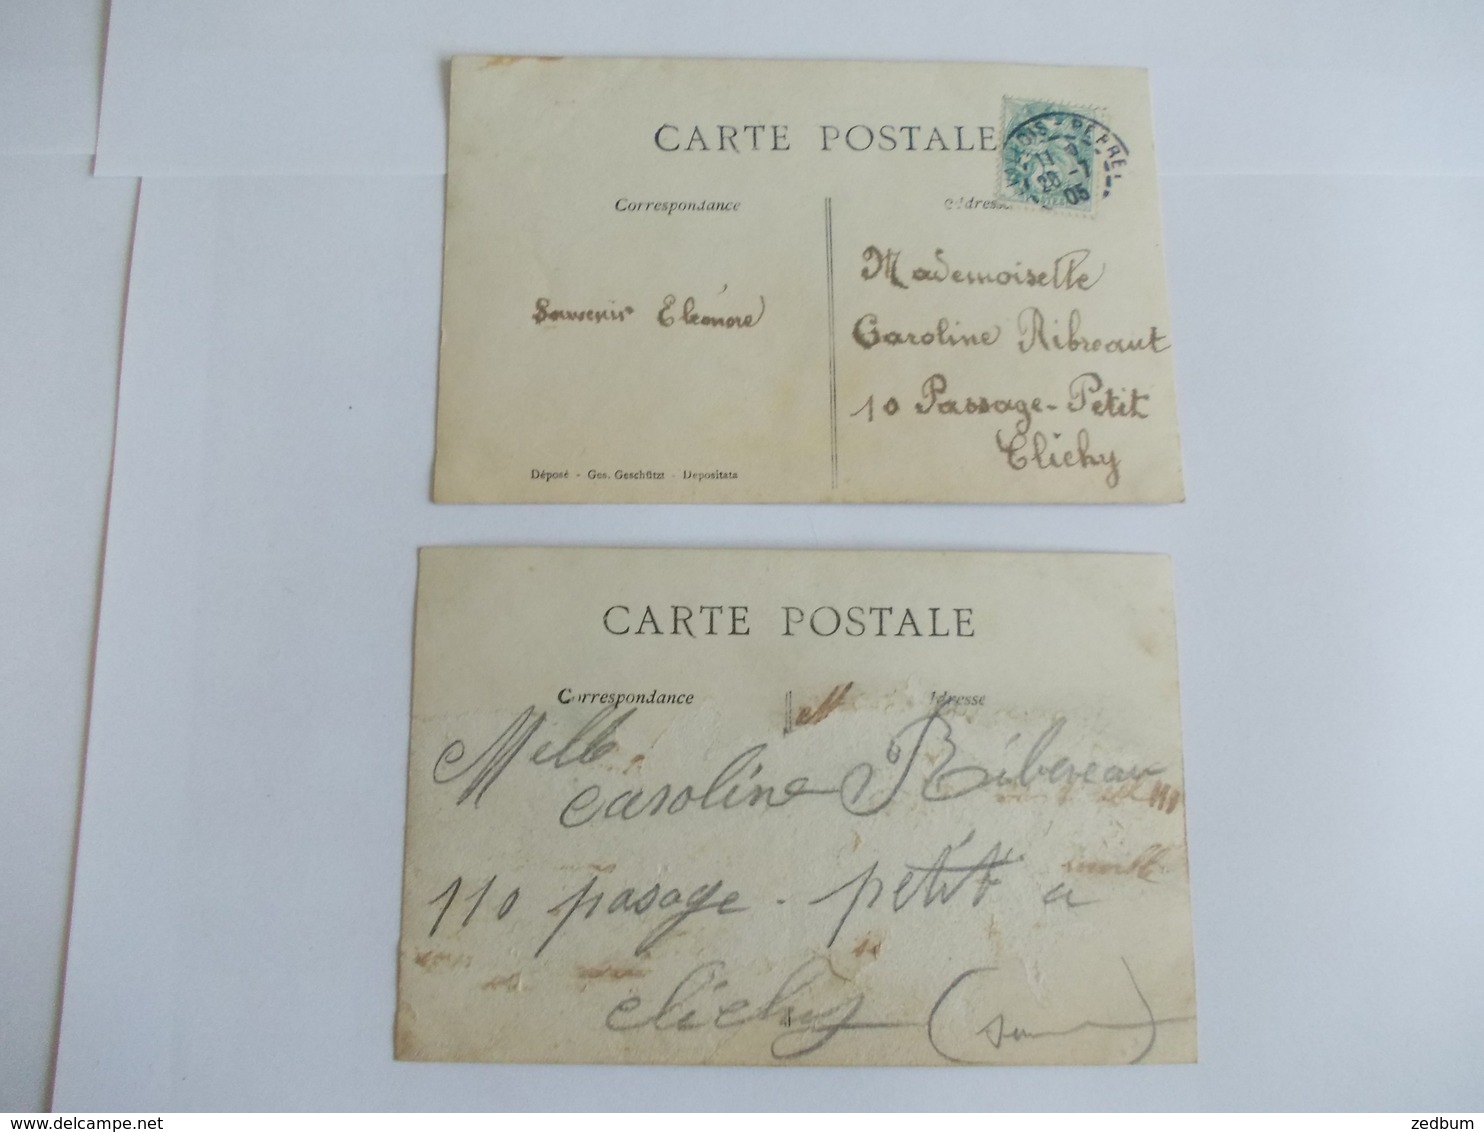 CARTE POSTALE
Correspondance
Adresse
Souvenir Eléonore
Mademoiselle
Caroline Ribreaut
10 Passage-Petit
Clichy
Déposé - Ges. Geschützt - Depositata
11
28 -1
05
CARTE POSTALE
Correspondance
Adresse
Melle
Caroline Ribereau
110 pasage - petit a
clichy (
zedbum